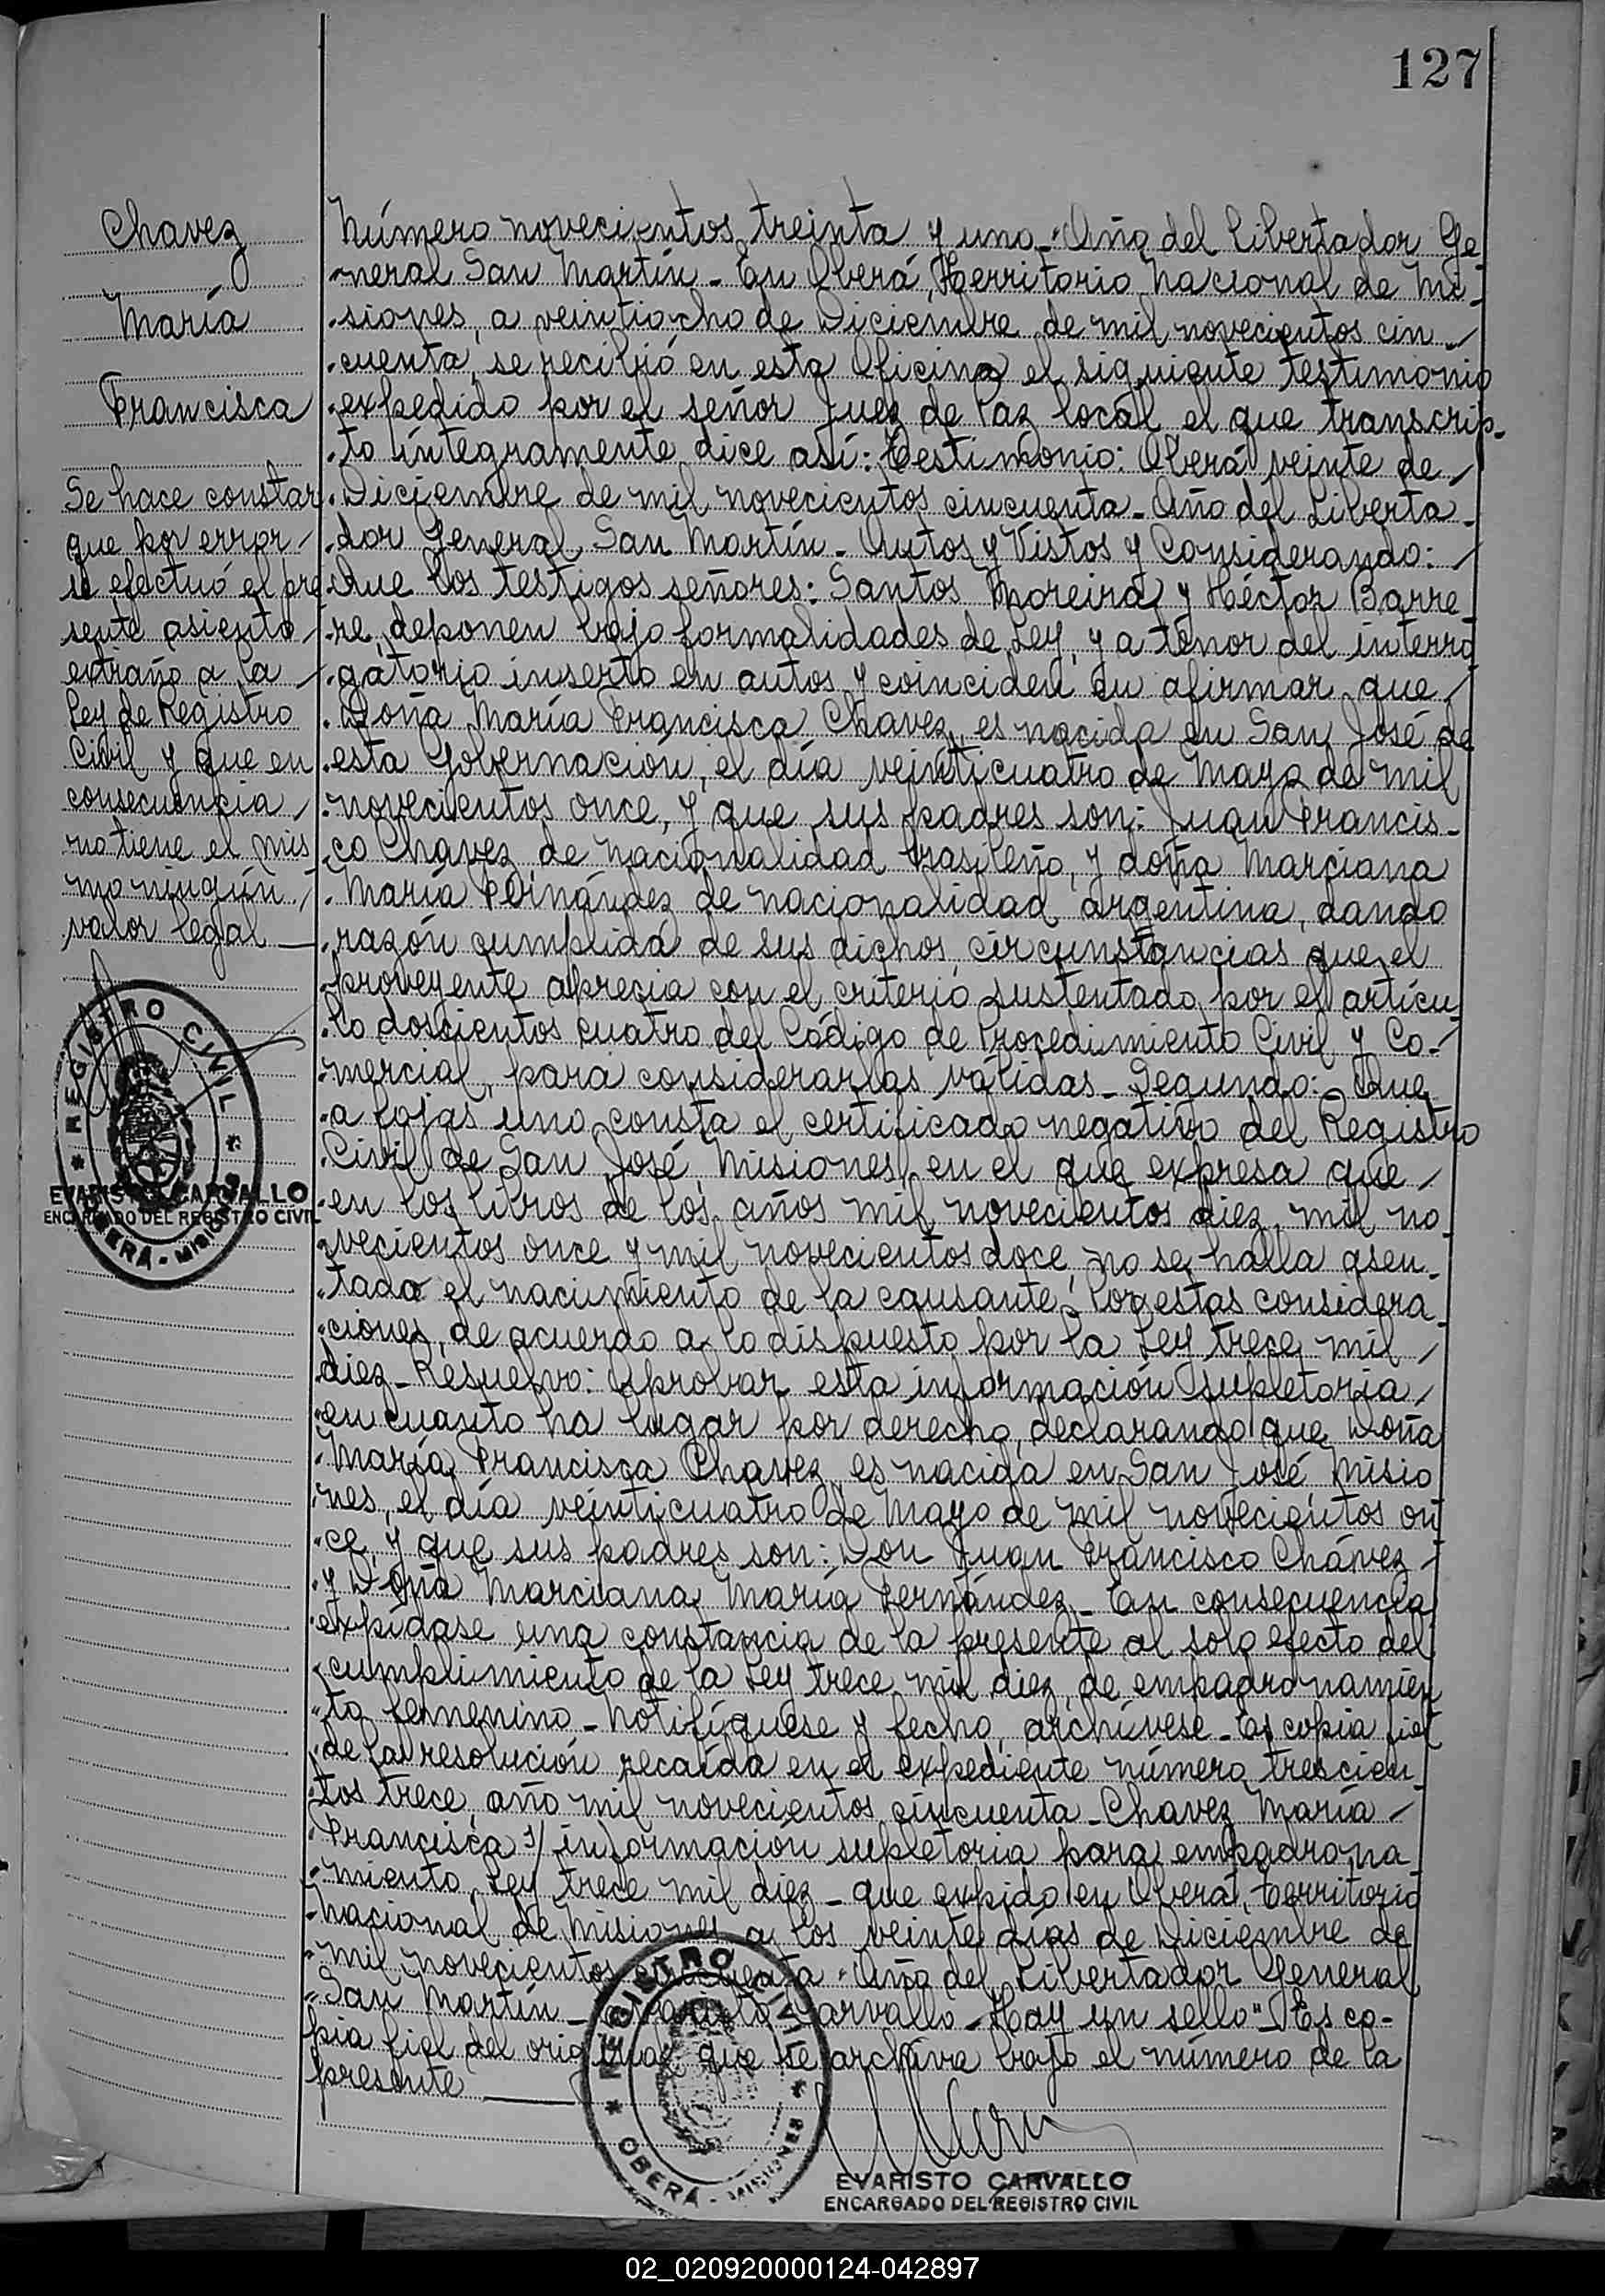 127
Chavez
María
Francisca
Se hace constar
que por error
se efectuó el pre
sente asiento
extraño a la
Ley de Registro
Civil y que en
consecuencia
no tiene el mis
mo ningún
valor legal
REGISTRO CIVIL
OBERÁ - MISIONES
EVARISTO CARVALLO
ENCARGADO DEL REGISTRO CIVIL
Número novecientos treinta y uno - "Año del Libertador Ge
neral San Martín - En Oberá, Territorio Nacional de Mi-
siones, a veintiocho de Diciembre de mil novecientos cin
cuenta, se recibió en esta Oficina el siguiente testimonio
expedido por el señor Juez de Paz local el que transcrip-
to íntegramente dice así: Testimonio: Oberá veinte de
Diciembre de mil novecientos cincuenta - Año del Liberta-
dor General San Martín - Autos y Vistos y Considerando:
Que los testigos señores: Santos Moreira y Héctor Barre
re, deponen bajo formalidades de Ley, y a tenor del interro
gatorio inserto en autos y coinciden en afirmar que
Doña María Francisca Chavez, es nacida en San José de
esta Gobernación, el día veinticuatro de Mayo de mil
novecientos once, y que sus padres son: Juan Francis-
co Chavez, de nacionalidad brasileño, y doña Marciana
María Fernández de nacionalidad argentina, dando
razón cumplida de sus dichos, circunstancias que el
proveyente aprecia con el criterio sustentado por el artícu
lo doscientos cuatro del Código de Procedimiento Civil y Co-
mercial, para considerarlas válidas - Segundo: Que
a fojas uno consta el certificado negativo del Registro
Civil de San José, Misiones, en el que expresa que
en los libros de los años mil novecientos diez, mil no
vecientos once y mil novecientos doce, no se halla asen-
tado el nacimiento de la causante. Por estas considera-
ciones, de acuerdo a lo dispuesto por la Ley trece mil
diez - Resuelvo: Aprobar esta información supletoria
en cuanto ha lugar por derecho, declarando que Doña
María Francisca Chavez, es nacida en San José Misio
nes, el día veinticuatro de Mayo de mil novecientos on
ce, y que sus padres son: Don Juan Francisco Chávez
y Doña Marciana María Fernández - En consecuencia
expídase una constancia de la presente al solo efecto del
cumplimiento de la Ley trece mil diez, de empadronamien
to femenino - Notifíquese y fecho, archívese - Es copia fiel
de la resolución recaída en el expediente número trescien-
tos trece, año mil novecientos cincuenta - Chavez María
Francisca s/ información supletoria para empadrona-
miento Ley trece mil diez - que expido en Oberá, territorio
Nacional de Misiones a los veinte días de Diciembre de
mil novecientos cincuenta - Año del Libertador General
San Martín - Evaristo Carvallo - Hay un sello" - Es co-
pia fiel del original que se archiva bajo el número de la
presente
REGISTRO CIVIL
OBERÁ - MISIONES
EVARISTO CARVALLO
ENCARGADO DEL REGISTRO CIVIL
02_020920000124-042897